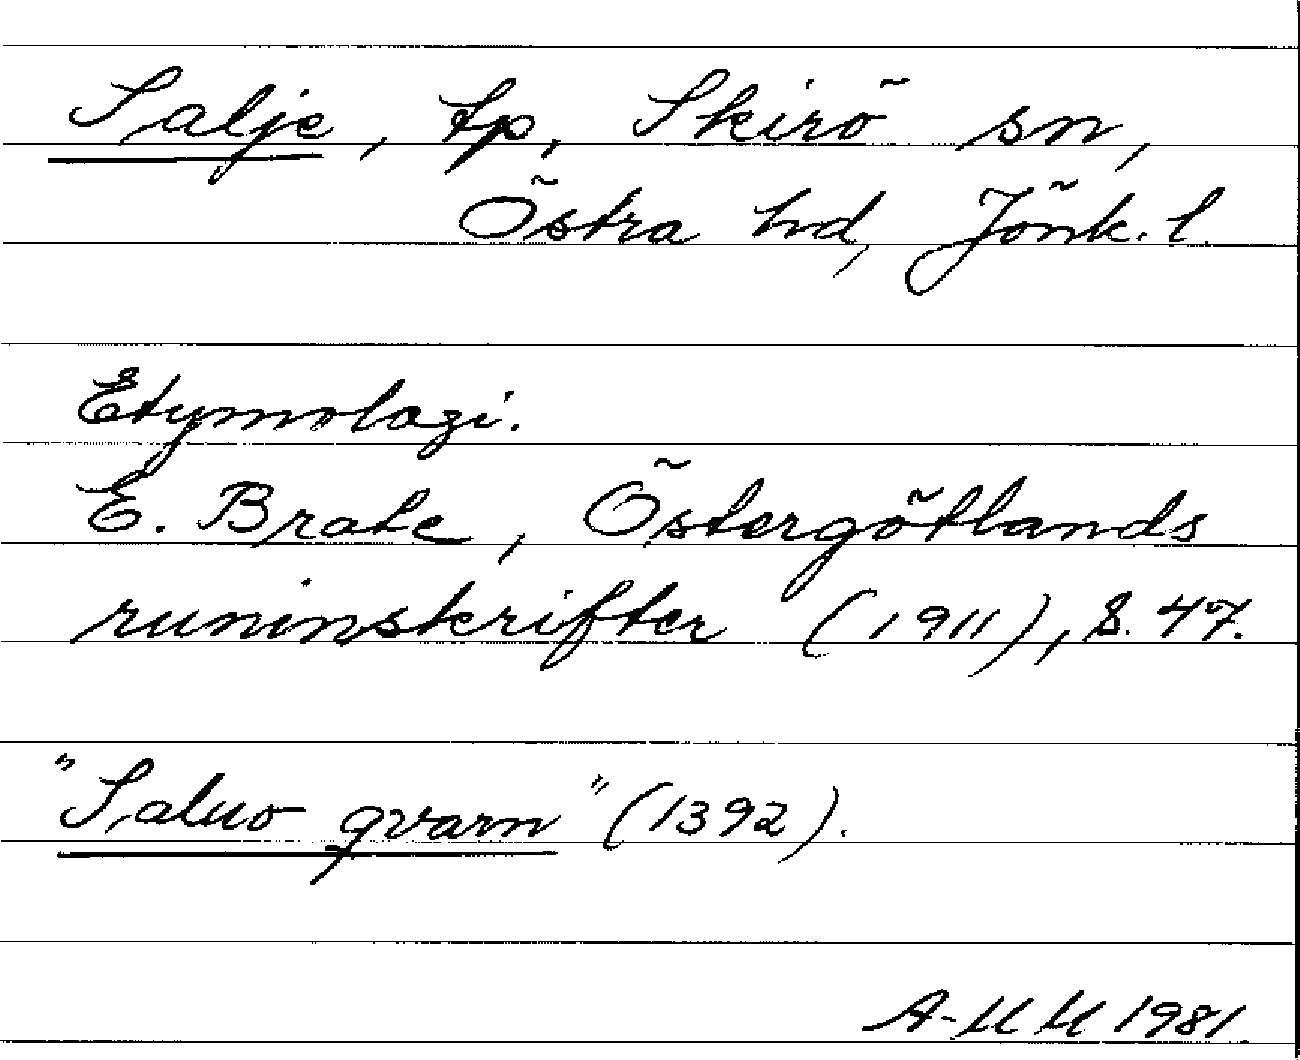 Salje, tp, Skirö sn,
Östra hd, Jönk. l.
Etymologi.
E. Brate, Östergötlands
runinskrifter (1911), s. 47.
"Saluo qvarn" (1392).
A-MM 1981.